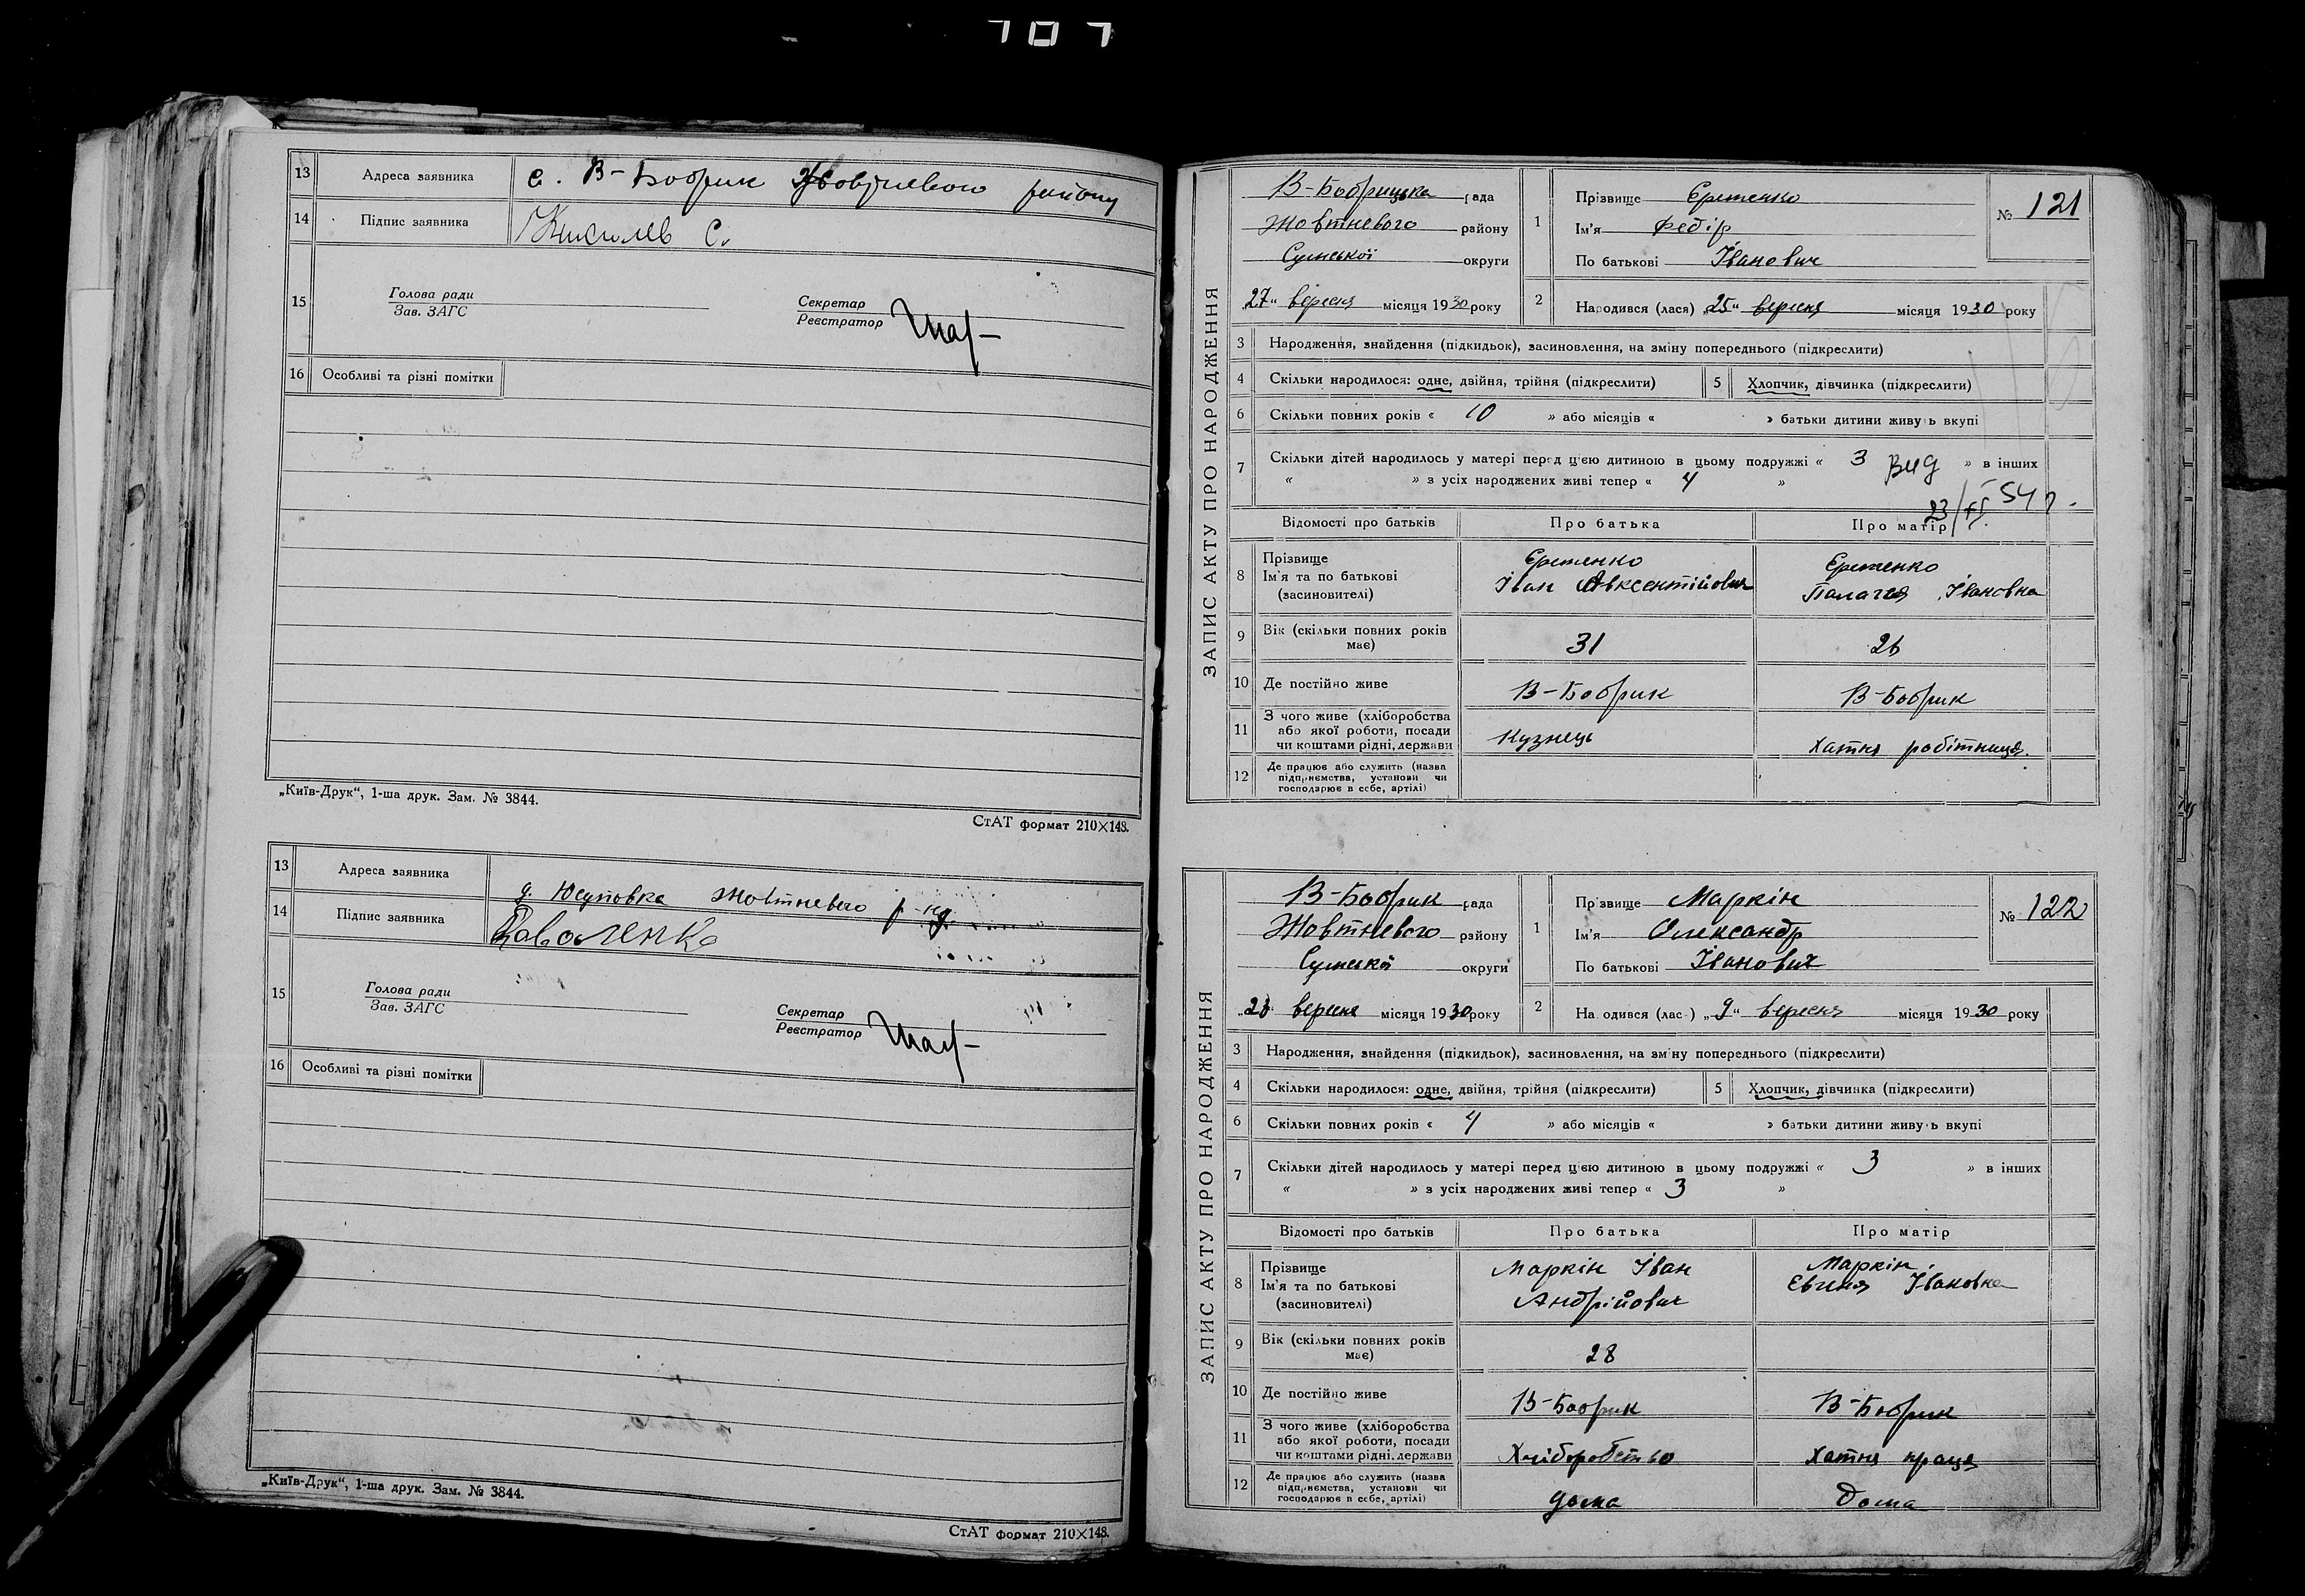 707
13 Адреса заявника с. В-Бобрик Жовтневого району
14 Підпис заявника Киселев С.
15 Голова ради
Зав. ЗАГС
Секретар
Реєстратор
16 Особливі та різні помітки
„Київ-Друк“, 1-ша друк. Зам. № 3844.
СтАТ формат 210×148.
13 Адреса заявника д. Юсуповка Жовтневого р-ну
14 Підпис заявника Коваленко
15 Голова ради
Зав. ЗАГС
Секретар
Реєстратор
16 Особливі та різні помітки
„Київ-Друк“, 1-ша друк. Зам. № 3844.
СтАТ формат 210×148.
ЗАПИС АКТУ ПРО НАРОДЖЕННЯ
В-Бобрицька рада
Жовтневого району
Сумської округи
„27“ вересня місяця 1930 року
1 Прізвище Єретенко
Ім'я Федір
По батькові Іванович
№ 121
2 Народився (лася) „25“ вересня місяця 1930 року
3 Народження, знайдення (підкидьок), засиновлення, на зміну попереднього (підкреслити)
4 Скільки народилося: одне, двійня, трійня (підкреслити) 5 Хлопчик, дівчинка (підкреслити)
6 Скільки повних років « 10 » або місяців « » батьки дитини живуть вкупі
7 Скільки дітей народилось у матері перед цією дитиною в цьому подружжі « 3 » в інших
« » з усіх народжених живі тепер « 4 »
вид
23/VI 54 р.
Відомості про батьків Про батька Про матір
8 Прізвище
Ім'я та по батькові
(засиновителі)
Єретенко
Іван Авксентійович
Єретенко
Палагея Івановна
9 Вік (скільки повних років має) 31 26
10 Де постійно живе В-Бобрик В-Бобрик
11 З чого живе (хліборобства
або якої роботи, посади
чи коштами рідні, держави
Кузнець Хатня робітниця.
12 Де працює або служить (назва
підприємства, установи чи
господарює в себе, артілі)
ЗАПИС АКТУ ПРО НАРОДЖЕННЯ
В-Бобрик рада
Жовтневого району
Сумської округи
„28“ вересня місяця 1930 року
1 Прізвище Маркін
Ім'я Олександр
По батькові Іванович
№ 122
2 Народився (лася) „9“ вересня місяця 1930 року
3 Народження, знайдення (підкидьок), засиновлення, на зміну попереднього (підкреслити)
4 Скільки народилося: одне, двійня, трійня (підкреслити) 5 Хлопчик, дівчинка (підкреслити)
6 Скільки повних років « 4 » або місяців « » батьки дитини живуть вкупі
7 Скільки дітей народилось у матері перед цією дитиною в цьому подружжі « 3 » в інших
« » з усіх народжених живі тепер « 3 »
Відомості про батьків Про батька Про матір
8 Прізвище
Ім'я та по батькові
(засиновителі)
Маркін Іван
Андрійович
Маркін
Євгенія Івановна
9 Вік (скільки повних років має) 28
10 Де постійно живе В-Бобрик В-Бобрик
11 З чого живе (хліборобства
або якої роботи, посади
чи коштами рідні, держави
Хліборобство Хатня праця
12 Де працює або служить (назва
підприємства, установи чи
господарює в себе, артілі)
дома Дома